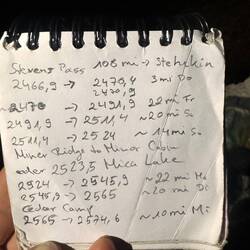 Stevens Pass 108 mi → Stehekin
2466,9 → 2470,4 3mi Do
2470,9
2470 → 2491,9 22mi Fr
2491,9 → 2511,4 ~20mi Sa
2511,4 → 2524 ~14mi So
Miner Ridge to Minor Cabin
oder 2523,5 Mica Lake
2524 → 2545,9 ~22mi Mo
2545,9 → 2565 ~20mi Di
Cedar Camp
2565 → 2574,6 ~10mi Mi